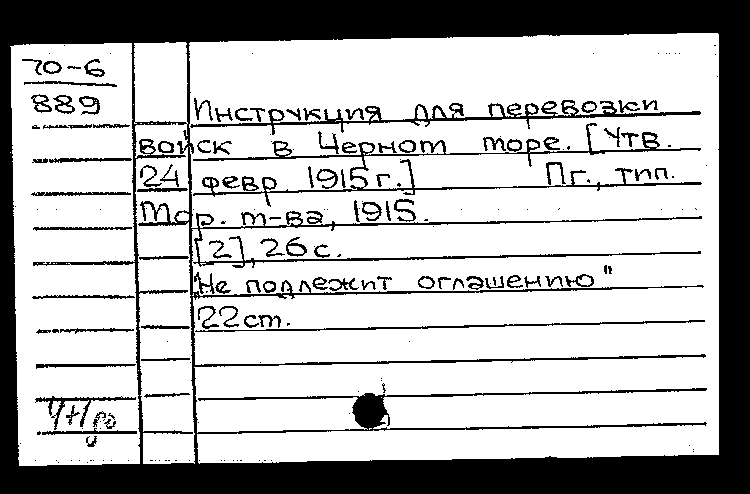 70-6
889
Инструкция для перевозки
войск в Черном море. [Утв.
24 февр. 1915 г.] Пг., тип.
Мор. м-ва, 1915.
[2], 26 с.
„Не подлежит оглашению"
22 см.